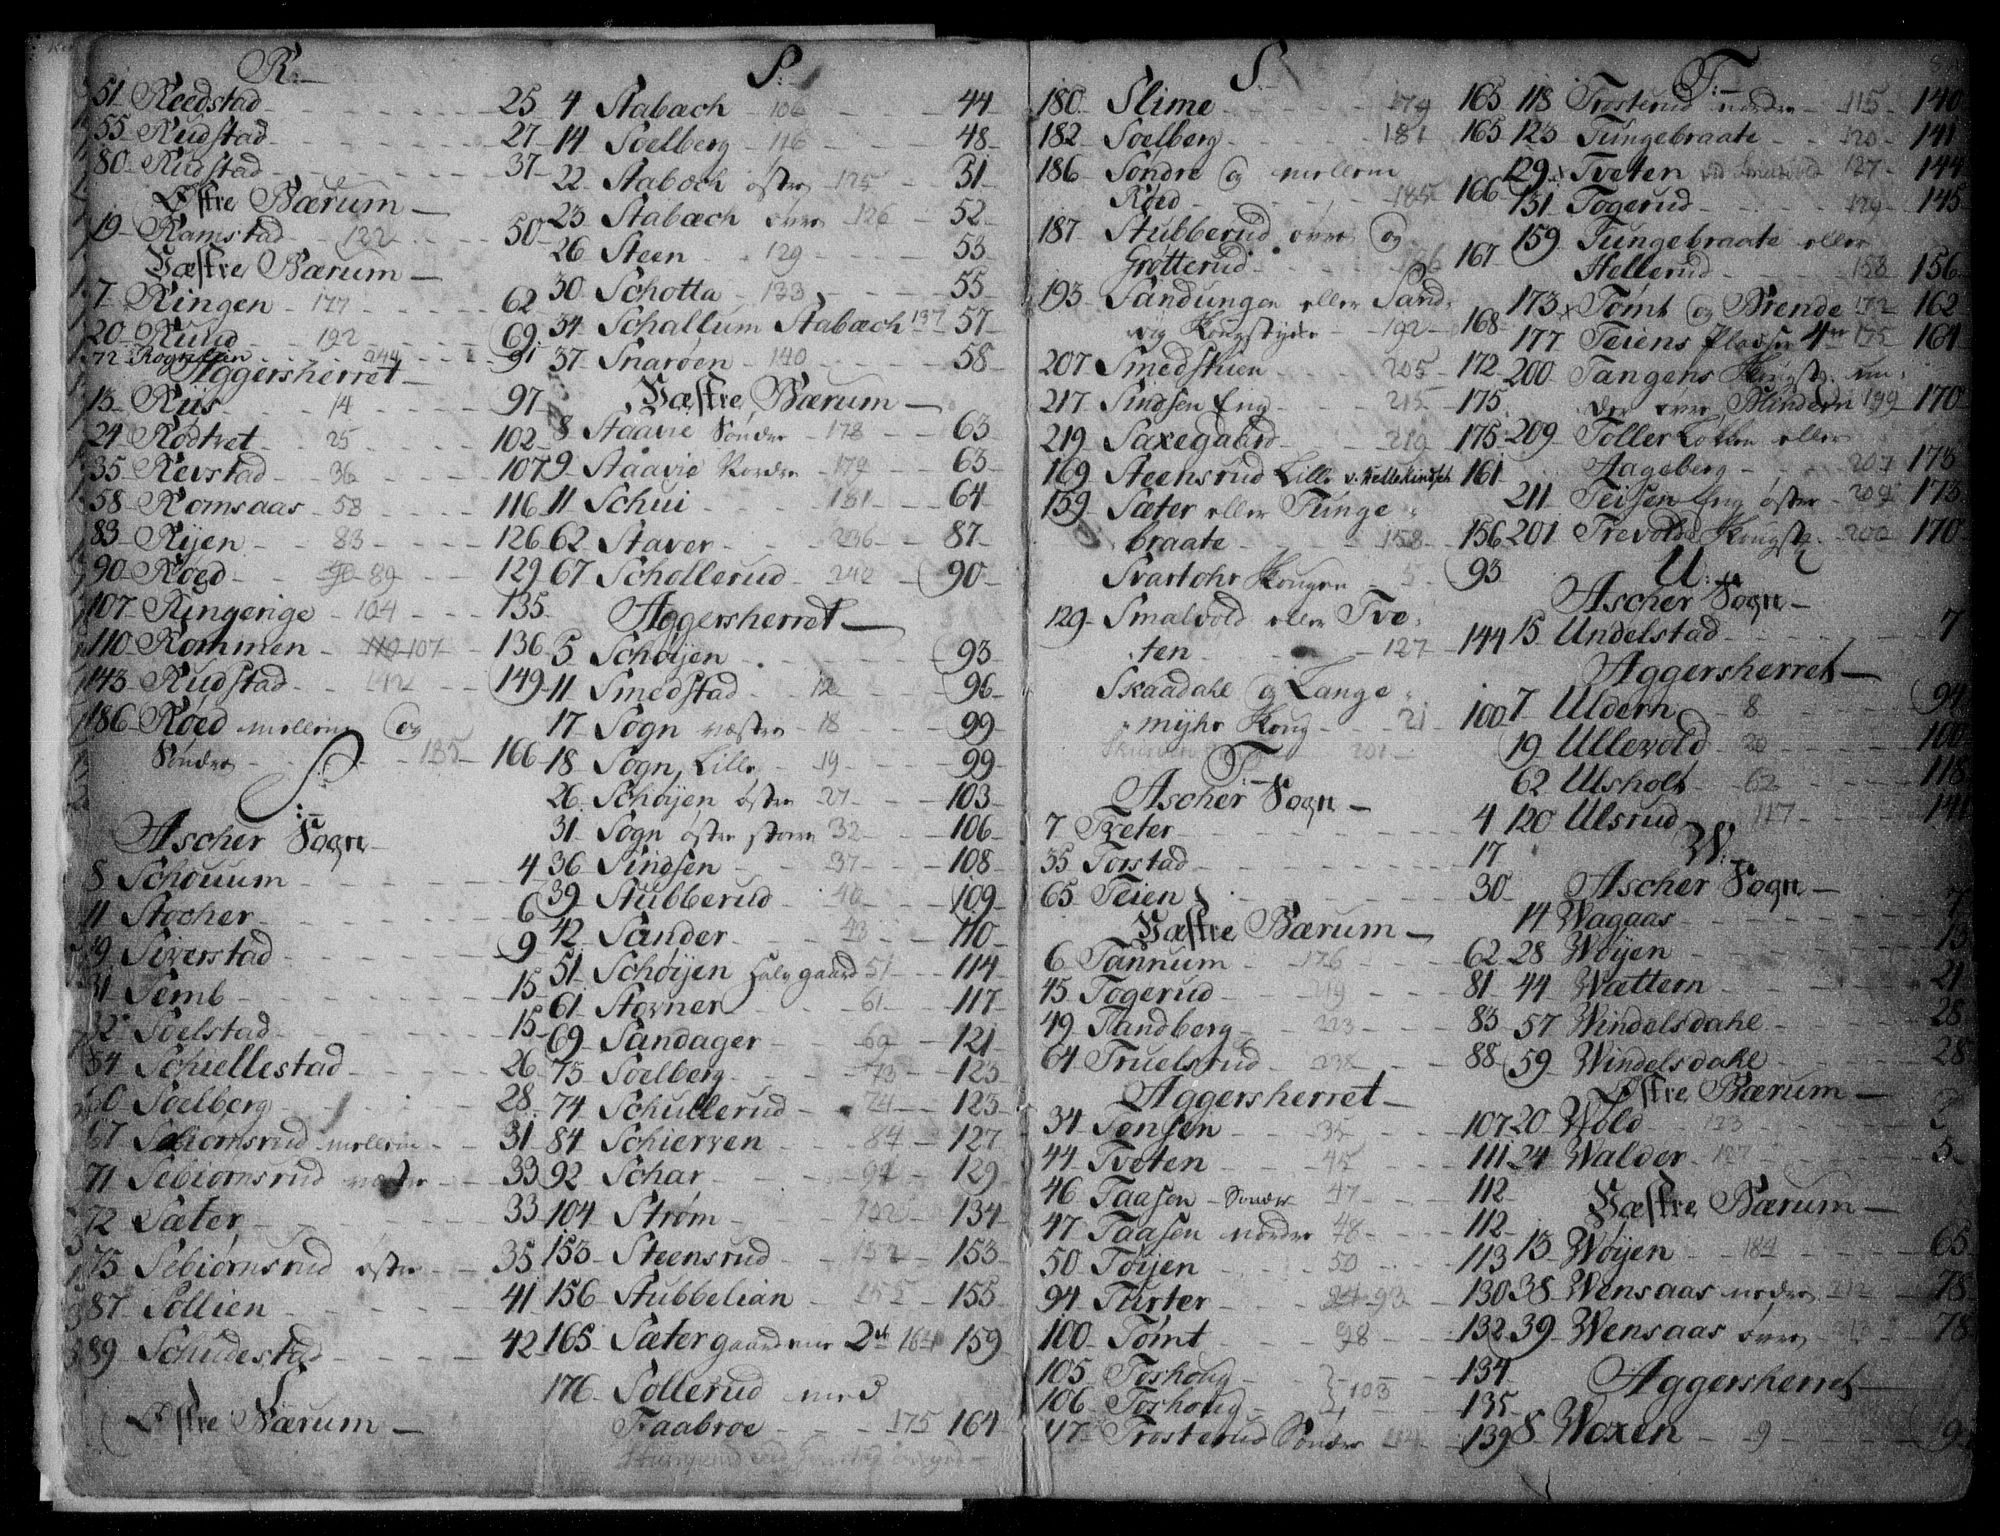 R:
51 Reedstad 25
55 Rudstad 27
80 Rudstad 37
Østre Bærum
19 Ramstad 122 50
Væstre Bærum
7 Ringen 177 62
20 Ruud 192 69
72 244 91
Aggersherret
13 Riis 14 97
24 Rødtvet 25 102
35 Revstad 36 107
58 Romsaas 58 116
83 Rijen 83 126
90 Röed 90 89 129
107 Ringerige 104 135
110 Rommen 110 107 136
143 Rudstad 142 149
186 Röed mellem og
Søndre 185 166
S:
Ascher Sogn
8 Schouum 4
11 Stocher 6
19 Siverstad 9
31 Semb 15
32 Soelstad 15
54 Schiellestad 26
60 Soelberg 28
67 Sebiørnsrud mellem 31
71 Sebiørnsrud væstre 33
72 Sæter 33
75 Sebiørnsrud østre 35
87 Sollien 41
89 Schudestad 42
Østre Bærum
S:
4 Stabæch 106 44
14 Soelberg 116 48
22 Stabæch østre 125 51
23 Stabæch øvre 126 52
26 Steen 129 53
30 Schotta 133 55
34 Schallum Stabæch 137 57
37 Snarøen 140 58
Væstre Bærum
8 Staavie Søndre 178 63
9 Staavie Nordre 179 63
11 Schui 181 64
62 Staver 236 87
67 Schollerud 242 90
Aggersherret
5 Schøijen 93
11 Smedstad 12 96
17 Sogn væstre 18 99
18 Sogn Lille 19 99
26 Schøijen østre 27 103
31 Sogn østre store 32 106
36 Sindsen 37 108
39 Stubberud 40 109
42 Sander 43 110
51 Schøijen halv gaard 51 114
61 Stovner 61 117
69 Sandager 69 121
73 Soelberg 73 123
74 Schullerud 74 123
84 Schierven 84 127
92 Schar 91 129
104 Strøm 102 134
153 Steensrud 152 153
156 Stubbelian 155 155
165 Sæter gaardene 2de 164 159
176 Sollerud med
Faabroe 175 164
S:
180 Slime 179 165
182 Soelberg 181 165
186 Søndre og mellem
Röed 185 166
187 Stubberud øvre og
Grøtterud 186 167
193 Sandungen eller Sand
vig Kongstyde 192 168
207 Smedstuen 205 172
217 Sindsen Eng 215 175
219 Saxegaard 219 175
169 Steensrud Lille 161
159 Sæter eller Tunge
braate 158 156
Svartohr Kongen 5 93
129 Smalvold eller Tve
ten 127 144
Skaadahl og Lange
mijhr Kong 21 100
201
T:
Ascher Sogn
7 Tveter 4
35 Torstad 17
65 Teien 30
Væstre Bærum
6 Tannum 176 62
45 Togerud 219 81
49 Tandberg 223 83
64 Truelsrud 238 88
Aggersherret
34 Tonsen 35 107
44 Tveten 45 111
46 Taasen Søndre 47 112
47 Taasen nordre 48 112
50 Tøijen 50 113
94 Turter 94 93 130
100 Tømt 98 132
105 Torshoug 134
106 Torshoug 103 135
117 Trosterud Søndre 114 139
T:
118 Trosterud nordre 115 140
123 Tungebraate 120 141
129 Tveten ved Smalvold 127 144
131 Togerud 129 145
159 Tungebraate eller
Hellerud 158 156
173 Tømt og Brende 172 162
177 Teiens Pladser 4re 175 164
200 Tangens Kongst. un
der øvre Blindern 199 170
209 Toller Løkken eller
Hageberg 207 173
211 Teisen Eng østre 209 173
201 Trevolds Kongst. 200 170
U:
Ascher Sogn
15 Undelstad 7
Aggersherret
7 Uldern 8 94
19 Ullevold 20 100
62 Ulsholt 62 118
120 Ulsrud 117 141
W:
Ascher Sogn
14 Wagaas 7
28 Wöijen 13
44 Wættern 21
57 Windelsdahl 28
59 Windelsdahl 28
Østre Bærum
20 Wold 123
24 Walder 127 5
Væstre Bærum
13 Wöijen 184 65
38 Wensaas nedre 212 78
39 Wensaas øvre 213 78
Aggersherret
8 Woxen 9 9